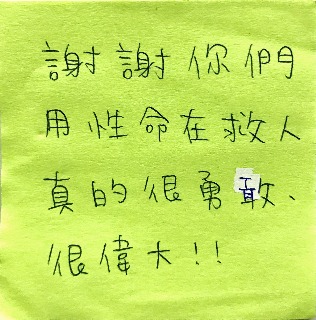 謝謝你們
用性命在救人
真的很勇敢、
很偉大!!